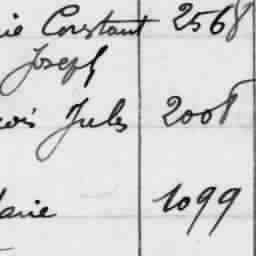 ie Constant 2568
Joseph
ois Jules 2008
arie 1099